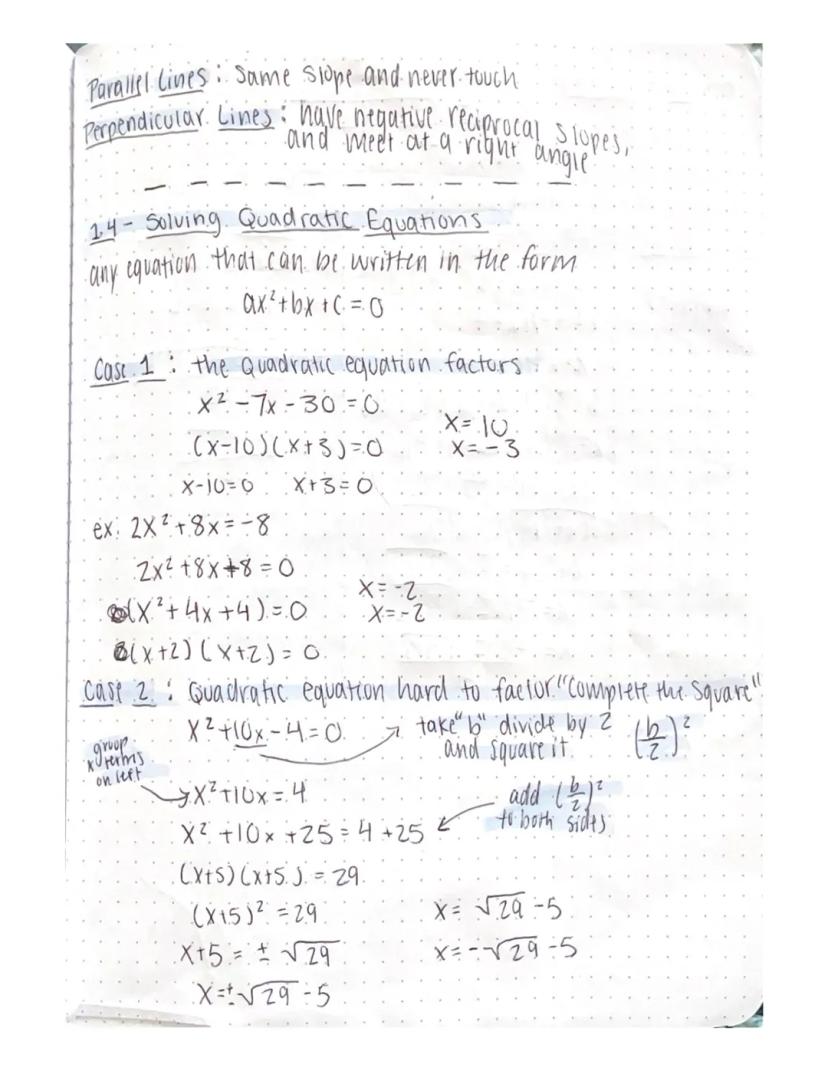 Parallel Lines: Same slope and never touch
Perpendicular Lines: have negative reciprocal slopes,
and meet at a right angle
1.4 - Solving Quadratic Equations
any equation that can be written in the form
ax²+bx+c=0
Case 1: the Quadratic equation factors
x²-7x-30=0
x=10
(x-10)(x+3)=0
x=-3
x-10=0 x+3=0
ex. 2x²+8x=-8
2x²+8x+8=0
x=-2
(x²+4x+4)=0
x=-2
(x+2)(x+2)=0
Case 2: Quadratic equation hard to factor "Complete the Square"
x²+10x-4=0
take "b" divide by 2
and square it
(b/2)²
group
x terms
on left
x²+10x=4
add (b/2)²
to both sides
x²+10x+25=4+25
(x+5)(x+5)=29
(x+5)²=29
x=√29-5
x+5=±√29
x=-√29-5
x=±√29-5